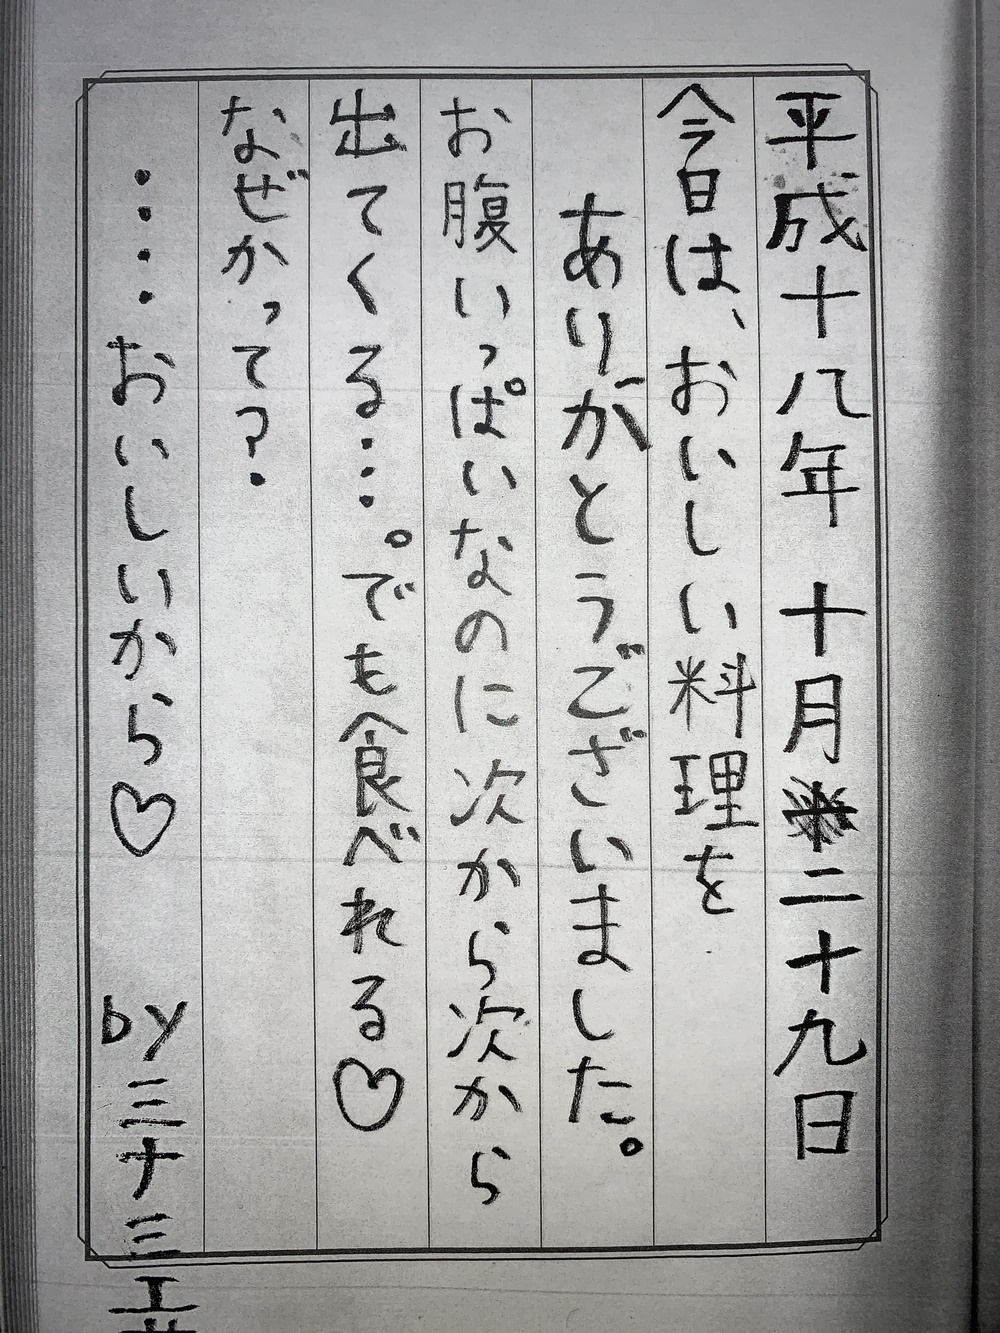 平成十八年 十月二十九日
今日は、おいしい料理を
ありがとうございました。
お腹いっぱいなのに次から次から
出てくる…。でも食べれる♡
なぜかって?
‥‥おいしいから♡ by ミナミ